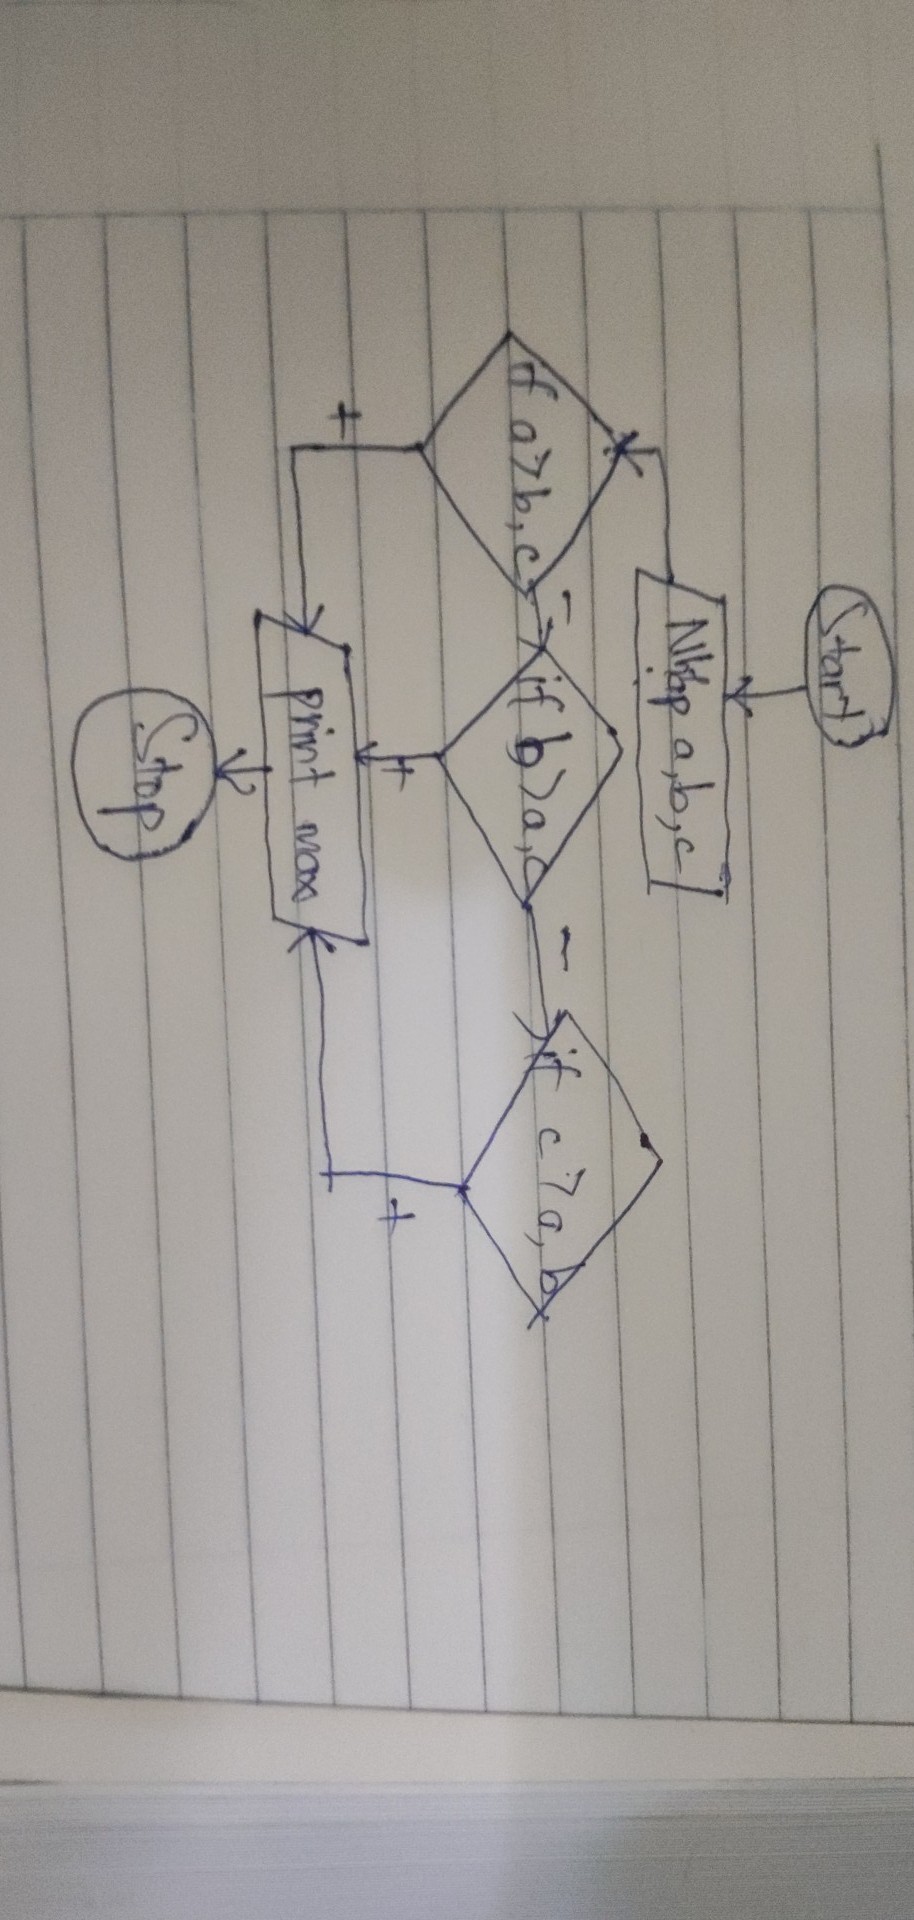 Start
Nhập a,b,c
if a>b,c
-
if b>a,c
-
if c>a,b
+
+
+
print max
Stop